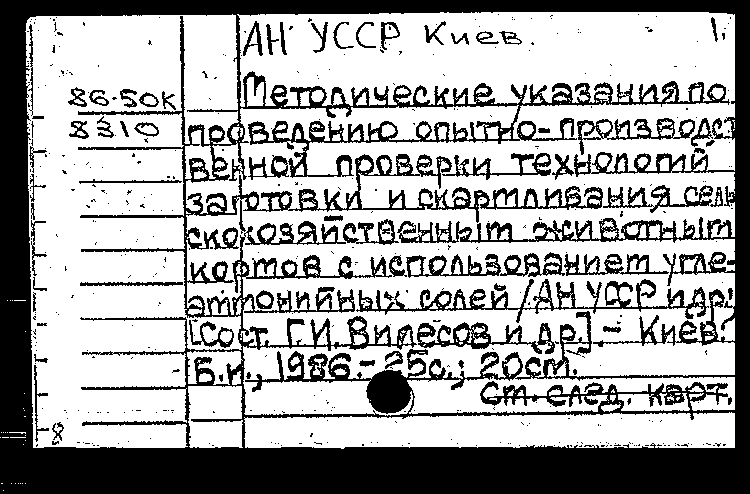 АН УССР Киев. 1.
86-50К Методические указания по
8310 проведению опытно-производст
венной проверки технологий
заготовки и скармливания сель
скохозяйственным животным
кормов с использованием угле-
аммонийных солей / АН УССР и др.;
[Сост. Г.И. Вилесов и др.].- Киев:
Б.и., 1986.- 25с.; 20см.
См. след. карт.
8